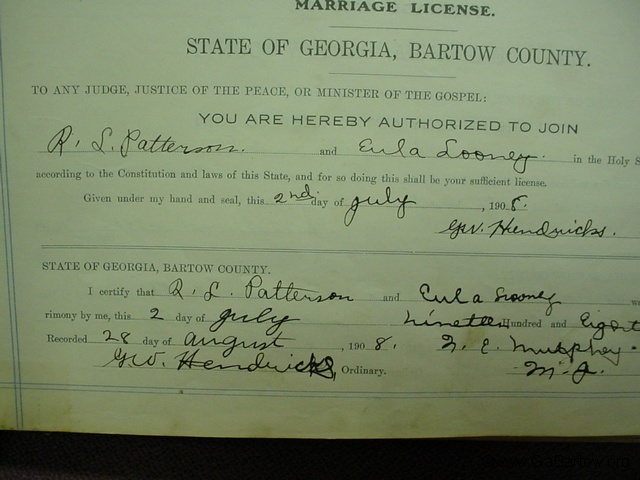 MARRIAGE LICENSE.
STATE OF GEORGIA, BARTOW COUNTY.
TO ANY JUDGE, JUSTICE OF THE PEACE, OR MINISTER OF THE GOSPEL:
YOU ARE HEREBY AUTHORIZED TO JOIN
R. L. Patterson. and Eula Looney. in the Holy S
according to the Constitution and laws of this State, and for so doing this shall be your sufficient license.
Given under my hand and seal, this 2nd day of July , 190 8.
G.W. Hendricks.
STATE OF GEORGIA, BARTOW COUNTY.
I certify that R. L. Patterson and Eula Looney w
rimony by me, this 2 day of July Nineteen Hundred and Eight
Recorded 28 day of August , 190 8. Murphey.
G.W. Hendricks, Ordinary.